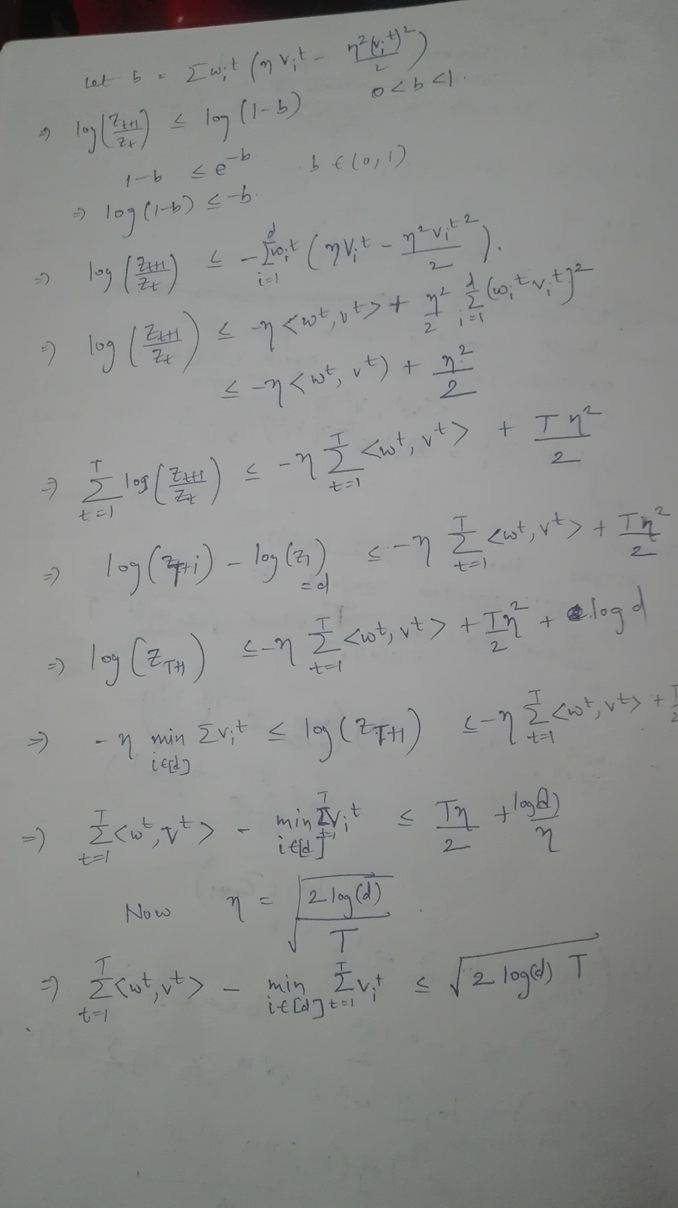 Let b = Σwᵢᵗ (η vᵢᵗ − η²(vᵢᵗ)²/2)
0 < b < 1.
⇒ log(Z_{t+1}/Z_t) ≤ log(1−b)
1−b ≤ e^{−b} b ∈ (0,1)
⇒ log(1−b) ≤ −b.
⇒ log(Z_{t+1}/Z_t) ≤ −Σ_{i=1}^{d} wᵢᵗ (η vᵢᵗ − η² vᵢᵗ²/2).
⇒ log(Z_{t+1}/Z_t) ≤ −η <wᵗ, vᵗ> + η²/2 Σ_{i=1}^{d} (wᵢᵗ vᵢᵗ)²
≤ −η <wᵗ, vᵗ) + η²/2
⇒ Σ_{t=1}^{T} log(Z_{t+1}/Z_t) ≤ −η Σ_{t=1}^{T} <wᵗ, vᵗ> + Tη²/2
⇒ log(Z_{T+1}) − log(Z_1) ≤ −η Σ_{t=1}^{T} <wᵗ, vᵗ> + Tη²/2
= d
⇒ log(Z_{T+1}) ≤ −η Σ_{t=1}^{T} <wᵗ, vᵗ> + Tη²/2 + log d
⇒ −η min_{i∈[d]} Σvᵢᵗ ≤ log(Z_{T+1}) ≤ −η Σ_{t=1}^{T} <wᵗ, vᵗ> +
⇒ Σ_{t=1}^{T} <wᵗ, vᵗ> − min_{i∈[d]} Σ_{t=1}^{T} vᵢᵗ ≤ Tη/2 + log(d)/η
Now η = √(2 log(d)/T).
⇒ Σ_{t=1}^{T} <wᵗ, vᵗ> − min_{i∈[d]} Σ_{t=1}^{T} vᵢᵗ ≤ √(2 log(d) T)